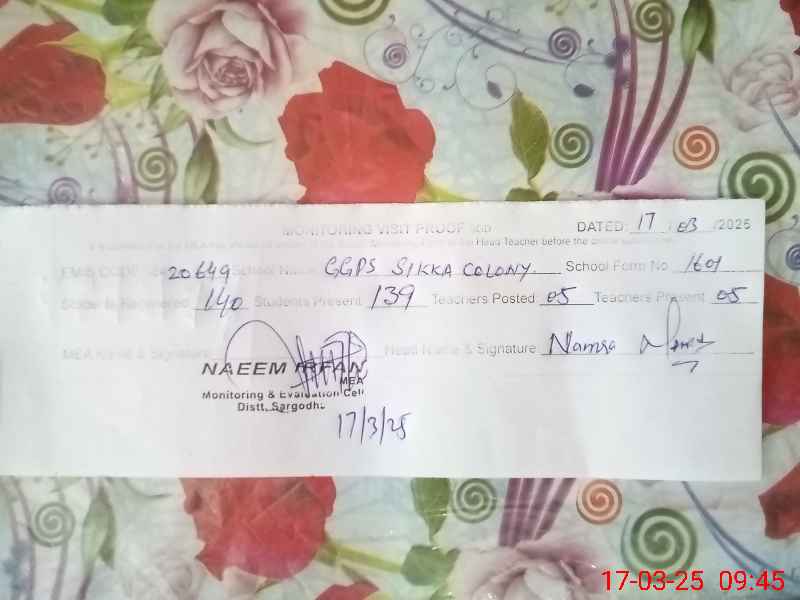 MONITORING VISIT PROOF DATED: 17 / 03 /2025
Head Teacher before the
EMIS CODE 20649 School Name GGPS SIKKA COLONY. School Form No. 1601
140 Students Present 139 Teachers Posted 05 Teachers Present 05
MEA Name & Signature Head Name & Signature Namra
NAEEM IRFAN
MEA
Monitoring & Evaluation Cell
Distt. Sargodha
17/3/25
17-03-25 09:45